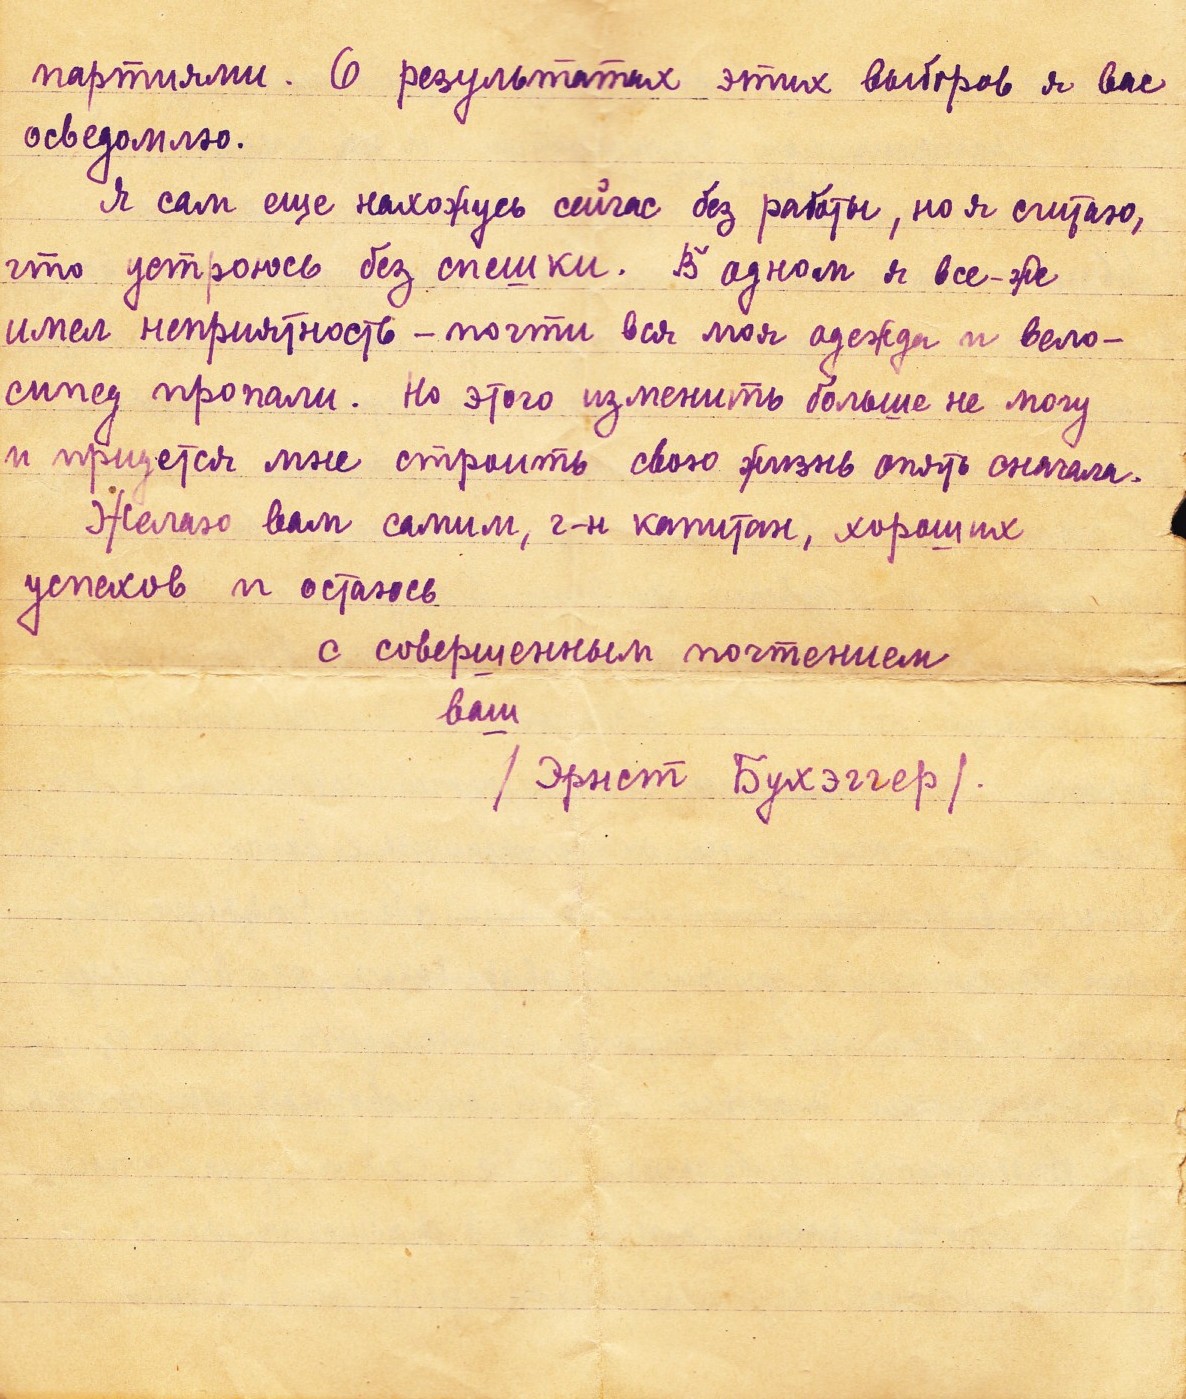 партиями. О результатах этих выборов я вас
осведомлю.
Я сам еще нахожусь сейчас без работы, но я считаю,
что устроюсь без спешки. В одном я все-же
имел неприятность – почти вся моя одежда и вело-
сипед пропали. Но этого изменить больше не могу
и придется мне строить свою жизнь опять сначала.
Желаю вам самим, г-н капитан, хороших
успехов и остаюсь
с совершенным почтением
ваш
/Эрнст Бухэггер/.